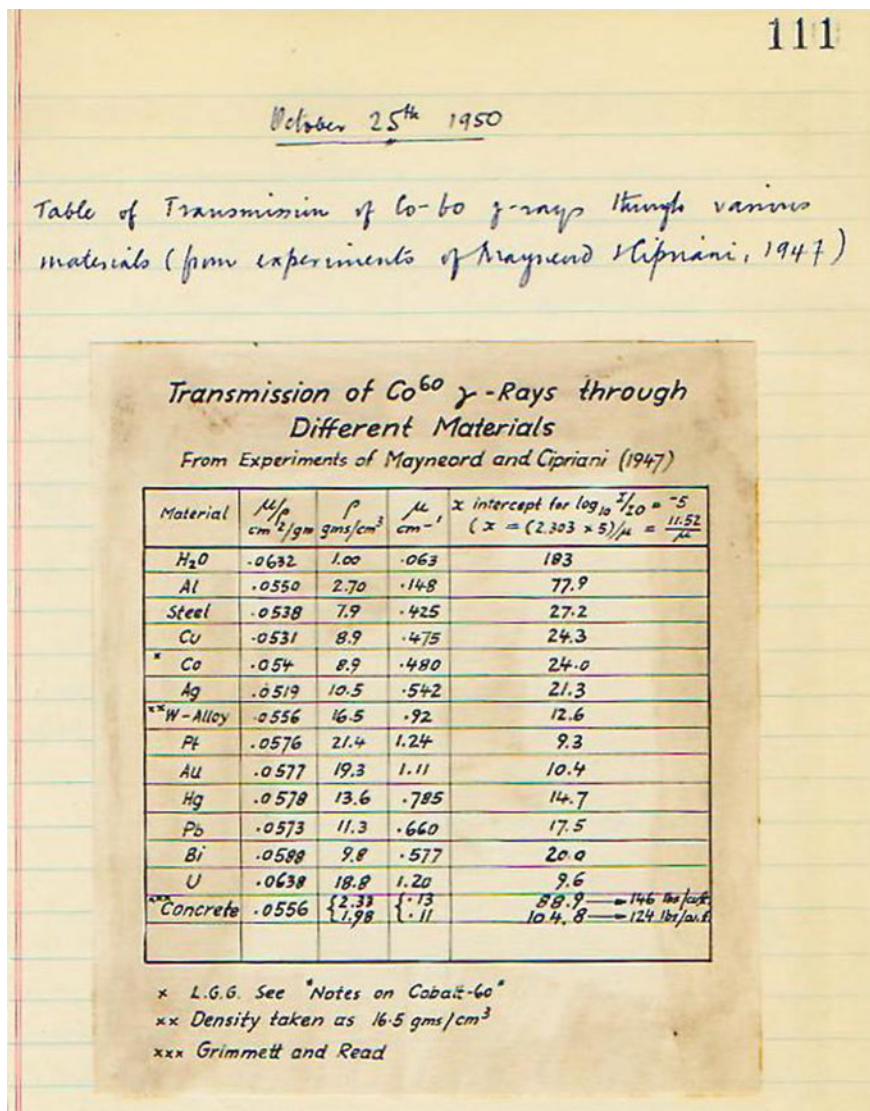 111
October 25th 1950
Table of Transmission of Co-60 γ-rays through various
materials (from experiments of Mayneord & Cipriani, 1947)
Transmission of Co⁶⁰ γ-Rays through
Different Materials
From Experiments of Mayneord and Cipriani (1947)
Material μ/ρ cm²/gm ρ gms/cm³ μ cm⁻¹ x intercept for log₁₀ I/I0 = -5 (x = (2.303 x 5)/μ = 11.52/μ
H₂O .0632 1.00 .063 183
Al .0550 2.70 .148 77.9
Steel .0538 7.9 .425 27.2
Cu .0531 8.9 .475 24.3
x Co .054 8.9 .480 24.0
Ag .0519 10.5 .542 21.3
xx W-Alloy .0556 16.5 .92 12.6
Pt .0576 21.4 1.24 9.3
Au .0577 19.3 1.11 10.4
Hg .0578 13.6 .785 14.7
Pb .0573 11.3 .660 17.5
Bi .0588 9.8 .577 20.0
U .0638 18.8 1.20 9.6
xxx Concrete .0556 {2.33 {.13 88.9 → 146 lbs/cu.f.
1.98 .11 104.8 → 124 lbs/cu.f.
x L.G.G. See "Notes on Cobalt-60"
xx Density taken as 16.5 gms/cm³
xxx Grimmett and Read